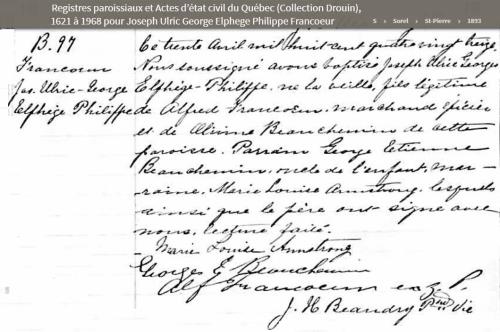 Registres paroissiaux et Actes d'état civil du Québec (Collection Drouin),
1621 à 1968 pour Joseph Ulric George Elphege Philippe Francoeur
S > Sorel > St-Pierre > 1893
B. 97
Francoeur
Jos. Ulric-George
Elphège Philippe
Le trente Avril mil huit cent quatre vingt treize
Nous soussigné avons baptisé Joseph Ulric Georges
Elphège-Philippe, né la veille, fils légitime
de Alfred Francoeur, marchand épicier
et de Alvina Beauchemin de cette
paroisse. Parrain George Etienne
Beauchemin, oncle de l'enfant, mar-
raine, Marie Louise Armstrong, lesquels
ainsi que le père ont signé avec
nous. Lecture faite.
Marie Louise Armstrong
Georges E Beauchemin
Alf Francoeur
J. H Beaudry Ptre Vic